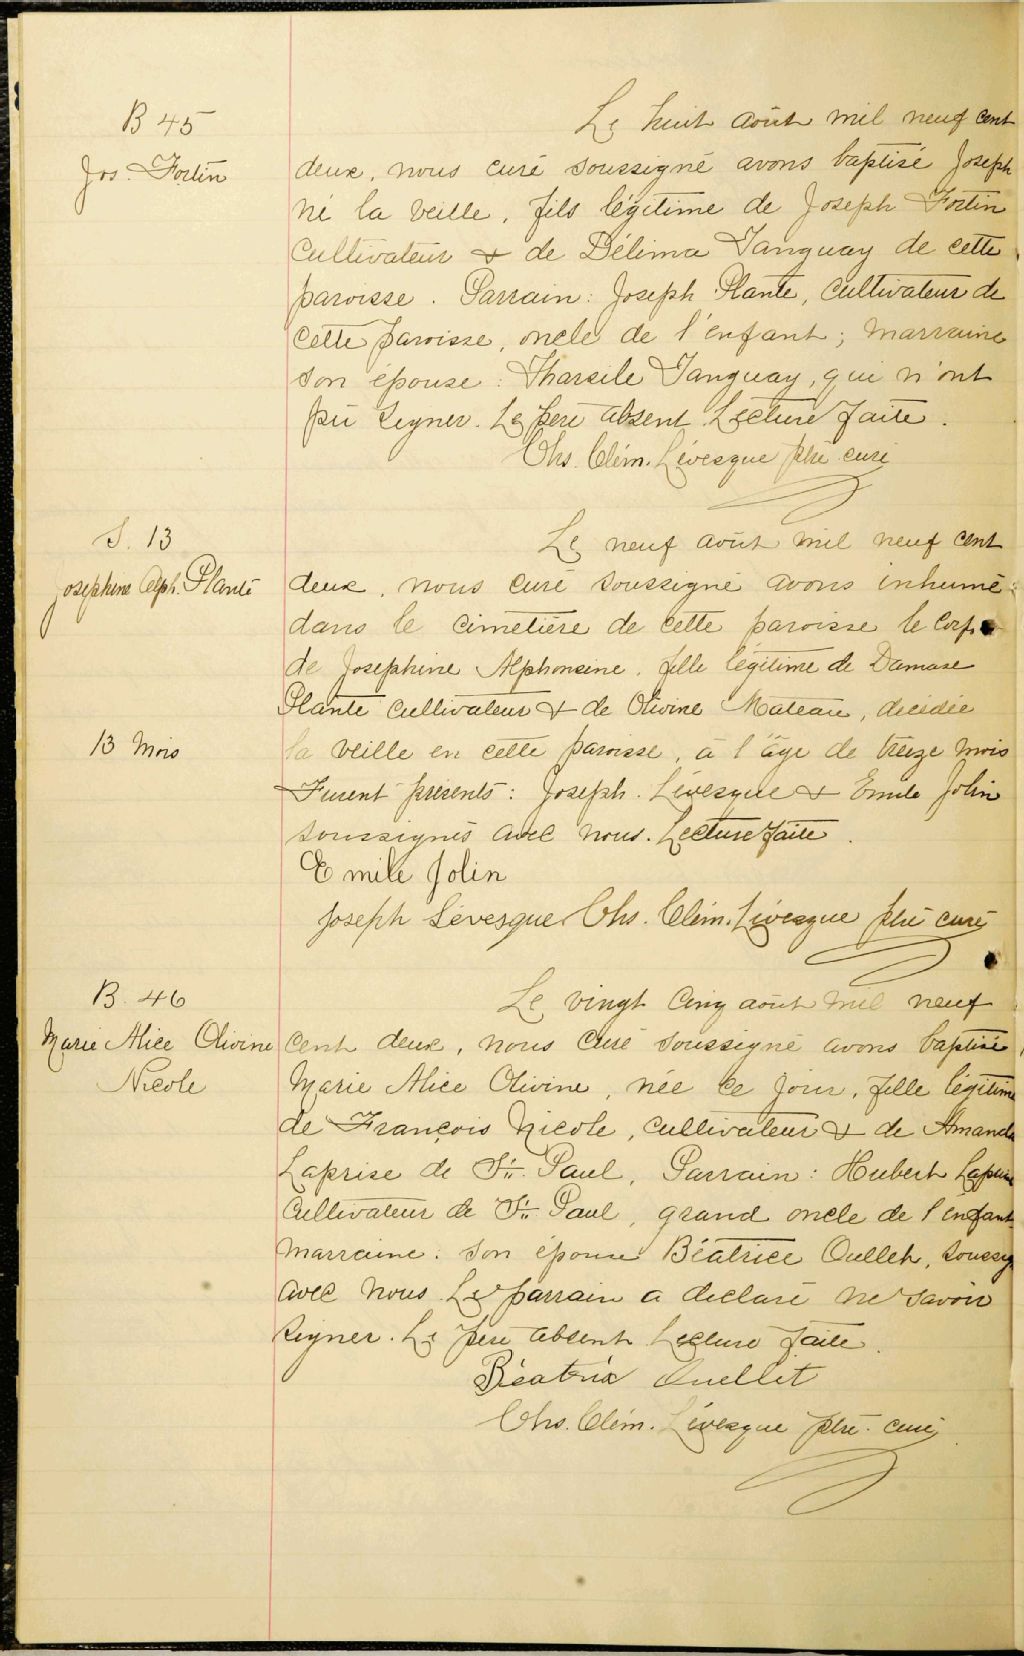 B 45
Jos. Fortin
Le huit août mil neuf cent
deux, nous curé soussigné avons baptisé Joseph
né la veille, fils légitime de Joseph Fortin
cultivateur & de Délima Tanguay de cette
paroisse. Parrain: Joseph Plante, cultivateur de
cette paroisse, oncle de l'enfant; marraine
son épouse: Tharsile Tanguay, qui n'ont
pu signer. Le père absent. Lecture faite.
Chs. Clém. Lévesque ptre curé
S. 13
Josephine Alph. Plante
13 mois
Le neuf août mil neuf cent
deux, nous curé soussigné avons inhumé
dans le cimetière de cette paroisse le corps
de Josephine Alphonsine, fille légitime de Damase
Plante cultivateur & de Olivine Mateau, décédée
la veille en cette paroisse, à l'âge de treize mois
Furent présents: Joseph Lévesque & Emile Jolin
soussignés avec nous. Lecture faite.
Emile Jolin
Joseph Lévesque Chs. Clém. Lévesque ptre curé
B. 46
Marie Alice Olivine
Nicole
Le vingt cinq août mil neuf
cent deux, nous curé soussigné avons baptisé
Marie Alice Olivine, née ce jour, fille légitime
de François Nicole, cultivateur & de Amanda
Laprise de St. Paul, Parrain: Hubert Laprise
cultivateur de St. Paul, grand oncle de l'enfant
marraine: son épouse Béatrice Ouelleh, soussig
avec nous. Le parrain a déclaré ne savoir
signer. Le père absent. Lecture faite.
Béatrix Ouellet
Chs. Clém. Lévesque ptre. curé